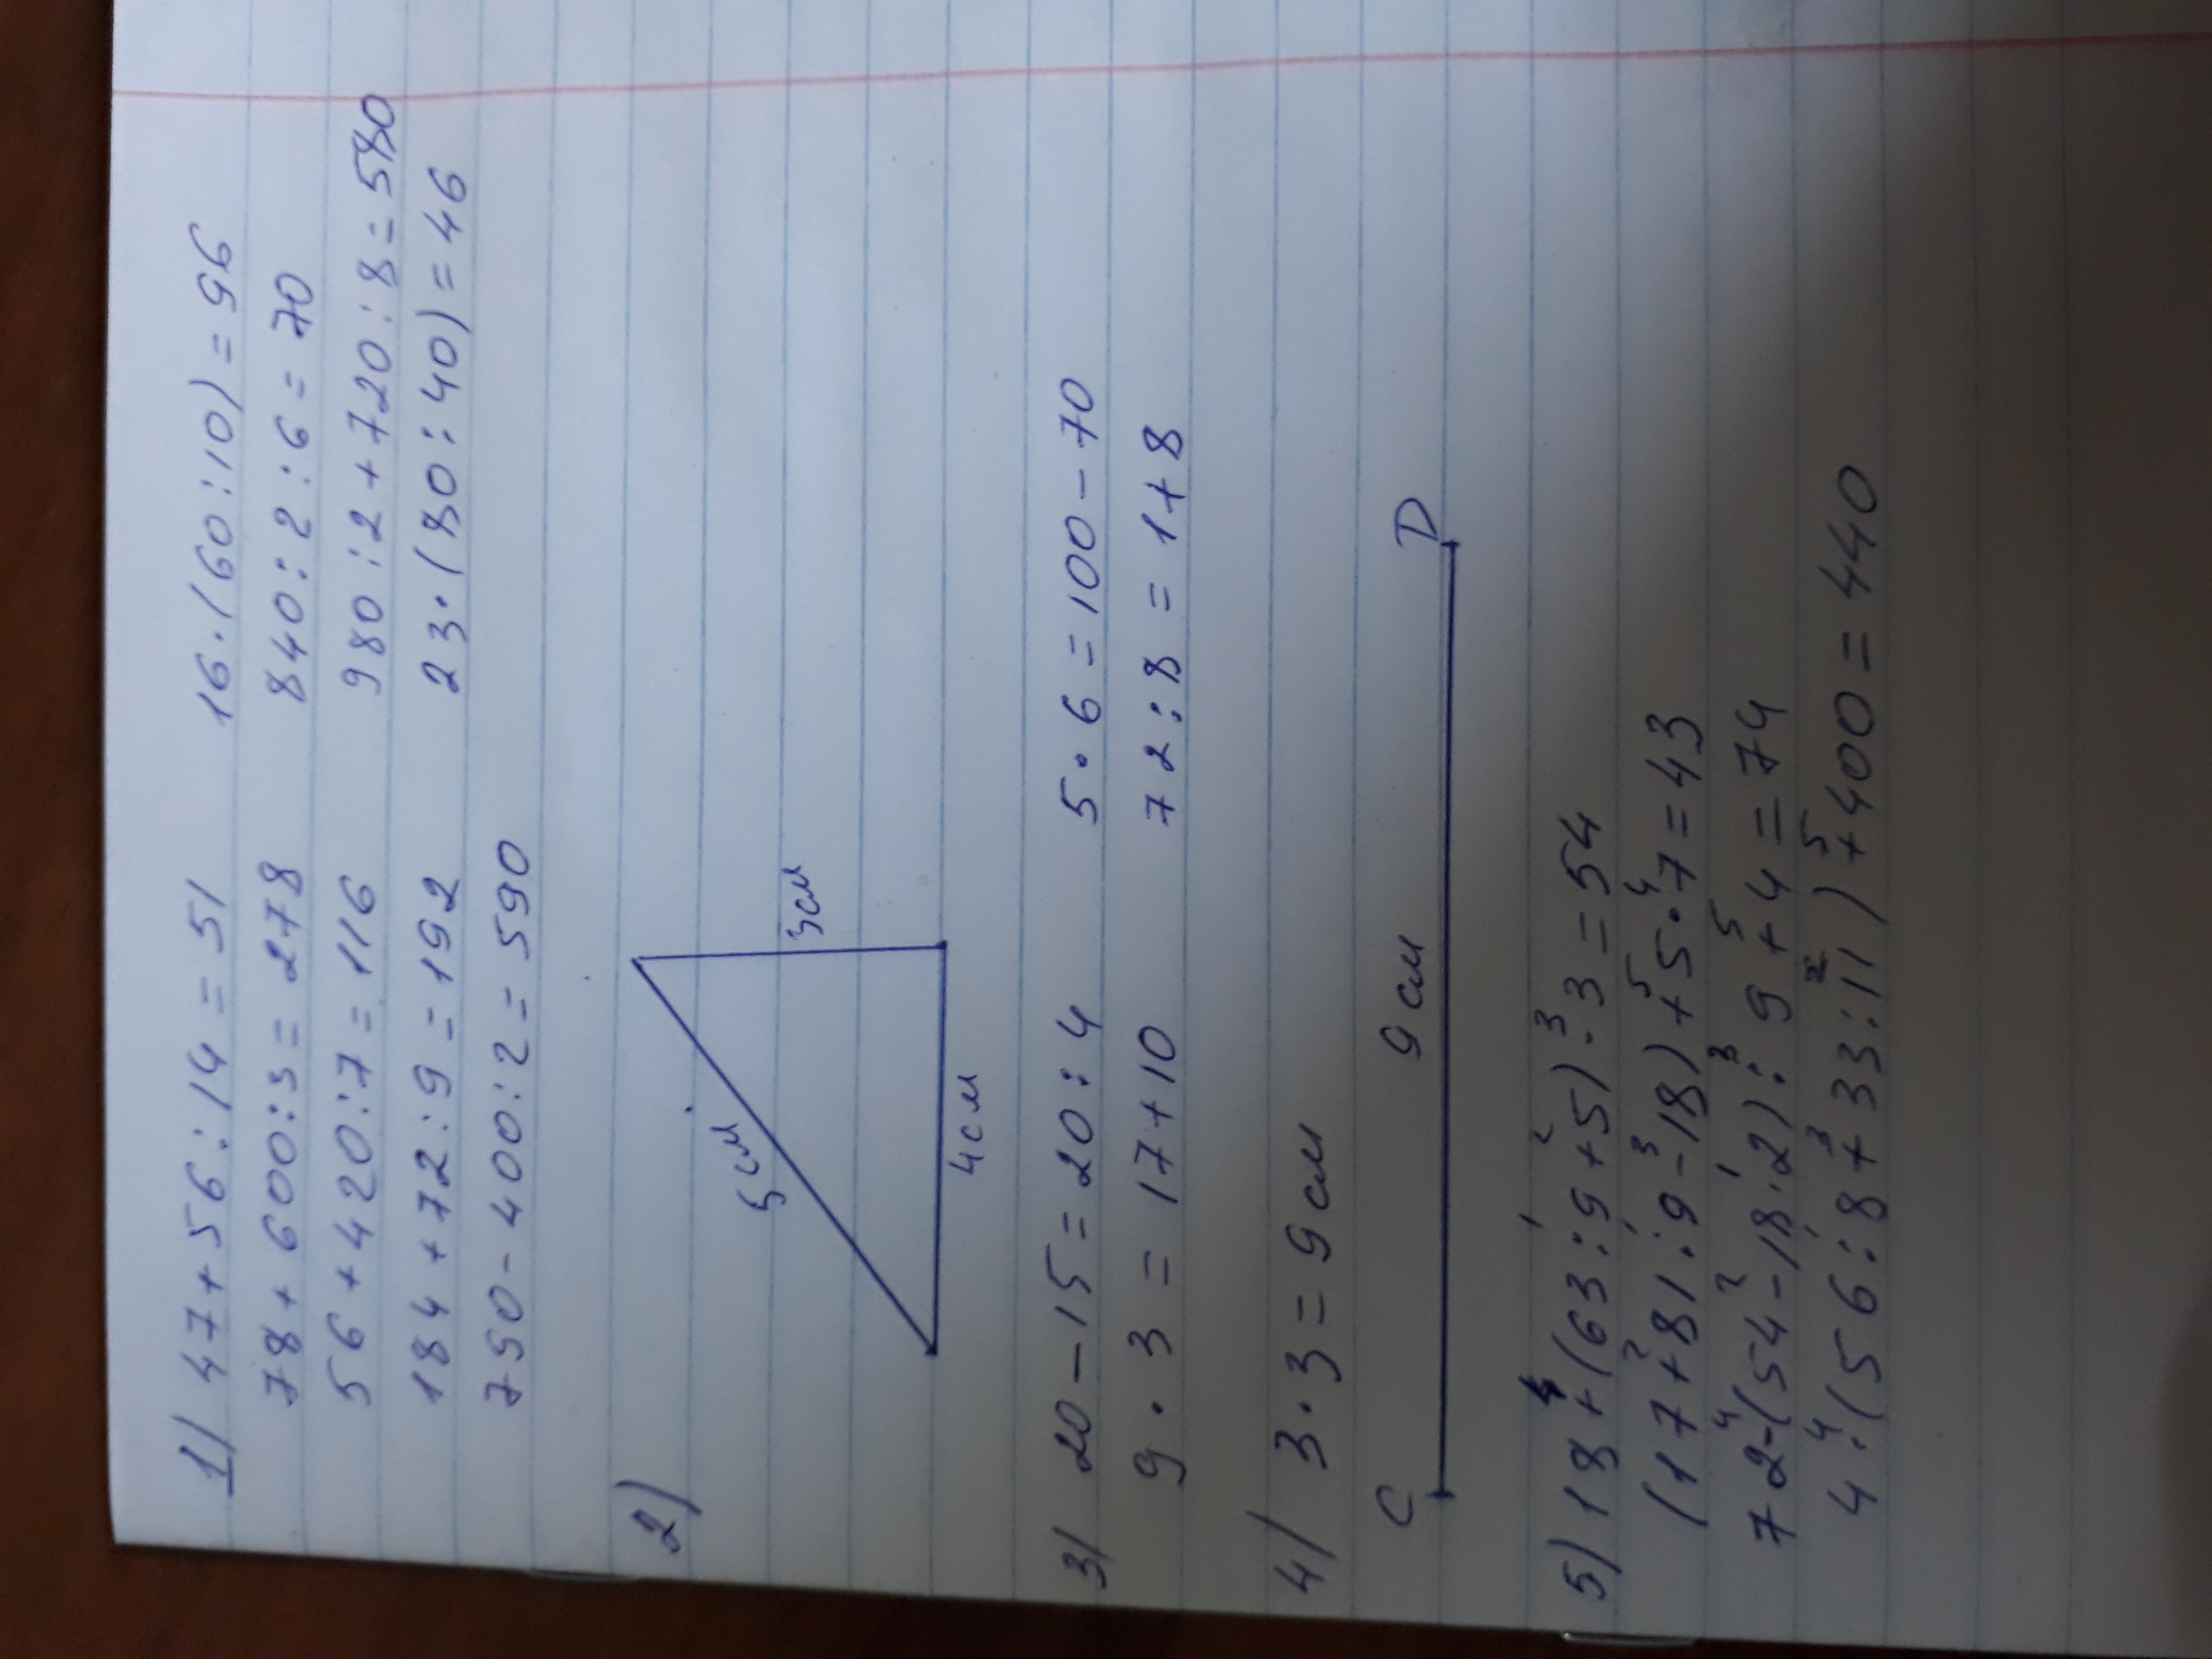 1) 47+56:14=51 16·(60:10)=96
78+600:3=278 840:2:6=70
56+420:7=116 980:2+720:8=580
184+72:9=192 23·(80:40)=46
790-400:2=590
2)
5см 3см
4см
3) 20-15=20:4 5·6=100-70
9·3=17+10 72:8=1+8
4) 3·3=9см
C 9см D
4 1 2 3
5) 18+(63:9+5)·3=54
2 1 3 5 4
(17+81:9-18)+5·7=43
4 2 1 3 5
72-(54-18·2):9+4=74
4 1 3 2 5
4·(56:8+33:11)+400=440